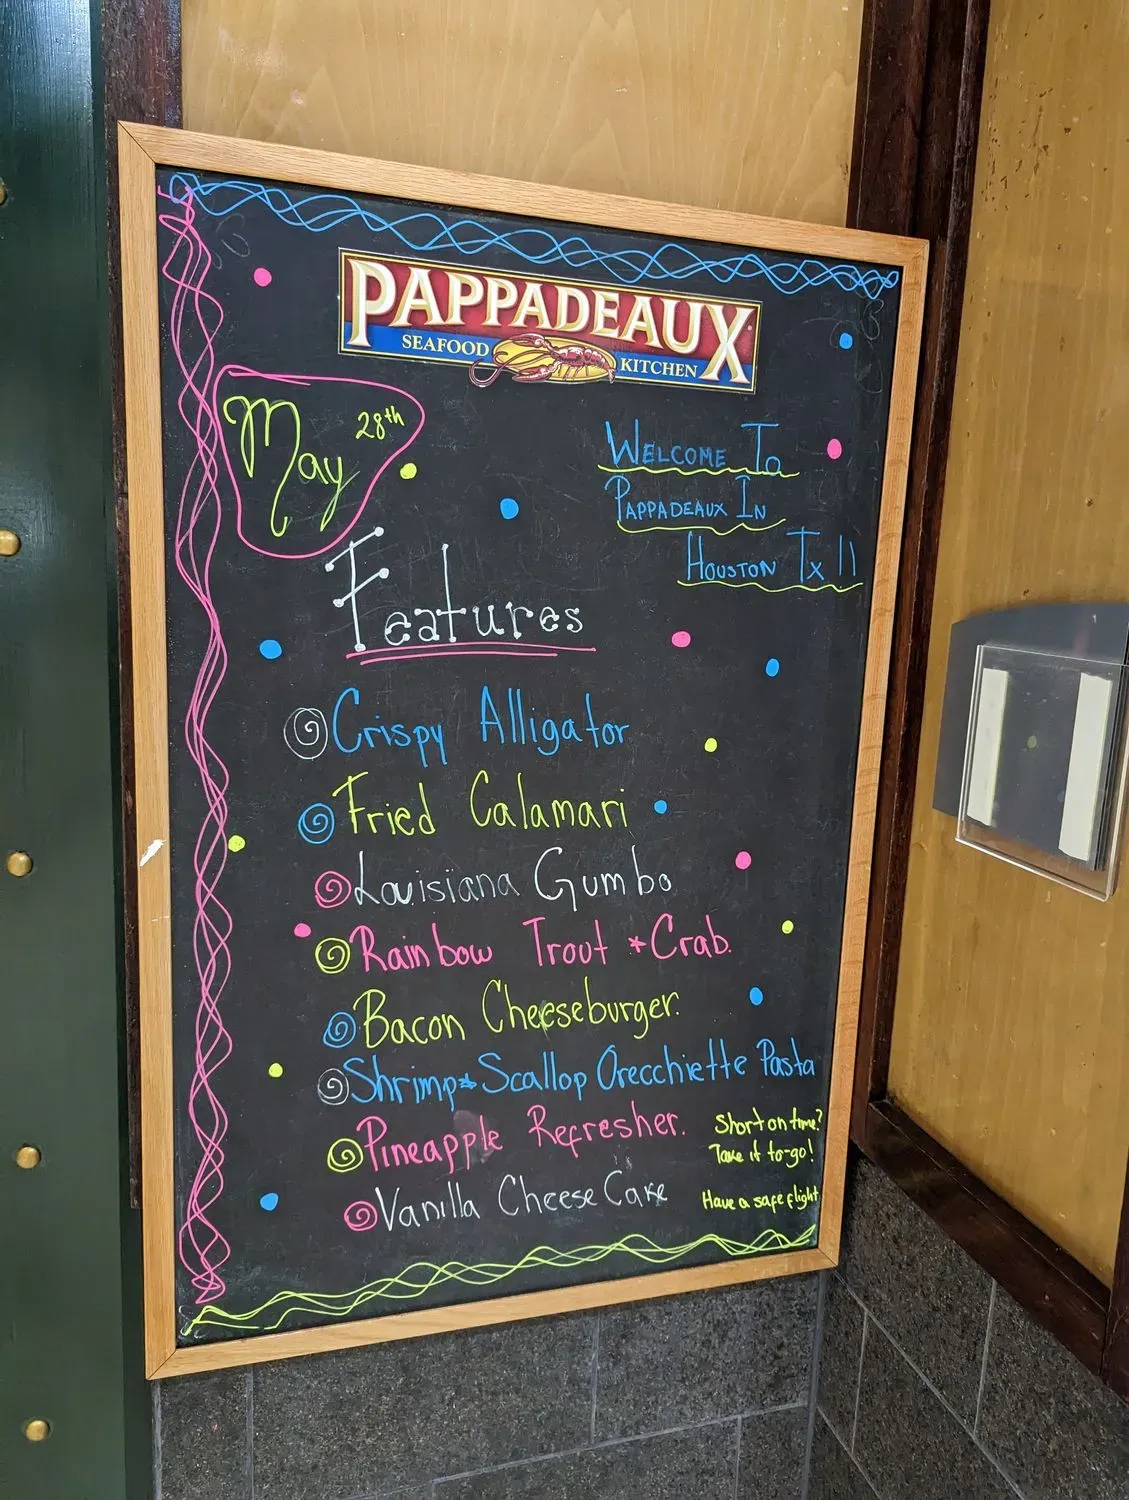 PAPPADEAUX
SEAFOOD KITCHEN
May 28th
WELCOME To
PAPPADEAUX IN
HOUSTON TX !!
Features
Crispy Alligator
Fried Calamari
Louisiana Gumbo
Rainbow Trout * Crab.
Bacon Cheeseburger.
Shrimp * Scallop Orecchiette Pasta
Pineapple Refresher.
Vanilla Cheese Cake
Short on time?
Take it to-go!
Have a safe flight